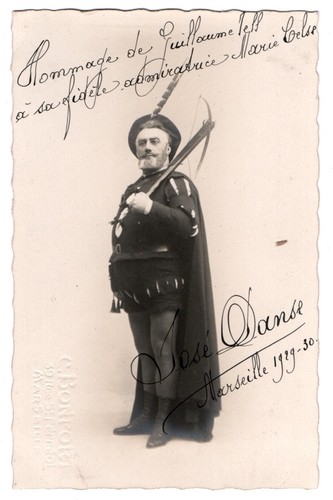 Hommage de Guillaume Tell
à sa fidèle admiratrice Marie Celse
José Danse
Marseille 1929-30.